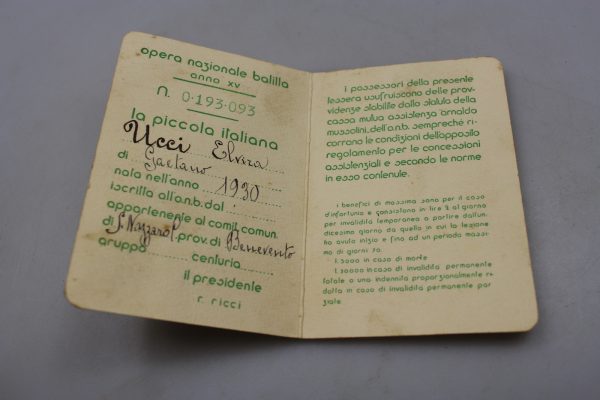 opera nazionale balilla
anno XV
N. 0·193·093
la piccola italiana
Ucci Elvira
di Gaetano
nata nell'anno 1930
iscritta all'o.n.b. dal
appartenente al comit. comun.
di S. Nazzaro C. prov. di Benevento
gruppo centuria
il presidente
r. ricci
I possessori della presente
tessera usufruiscono delle prov-
videnze stabilite dallo statuto della
cassa mutua assistenza arnaldo
mussolini, dell'o.n.b. sempreche ri-
corrano le condizioni dell'apposito
regolamento per le concessioni
assistenziali e secondo le norme
in esso contenute.
i benefici di massima sono per il caso
d'infortunio e consistono in lire 2 al giorno
per invalidita temporanea a partire dall'un-
dicesimo giorno da quello in cui la lesione
ha avuto inizio e fino ad un periodo massi-
mo di giorni 70.
l. 5000 in caso di morte
l. 30000 in caso di invalidita permanente
totale o una indennita proporzionalmente ri-
dotta in caso di invalidita permanente par-
ziale.